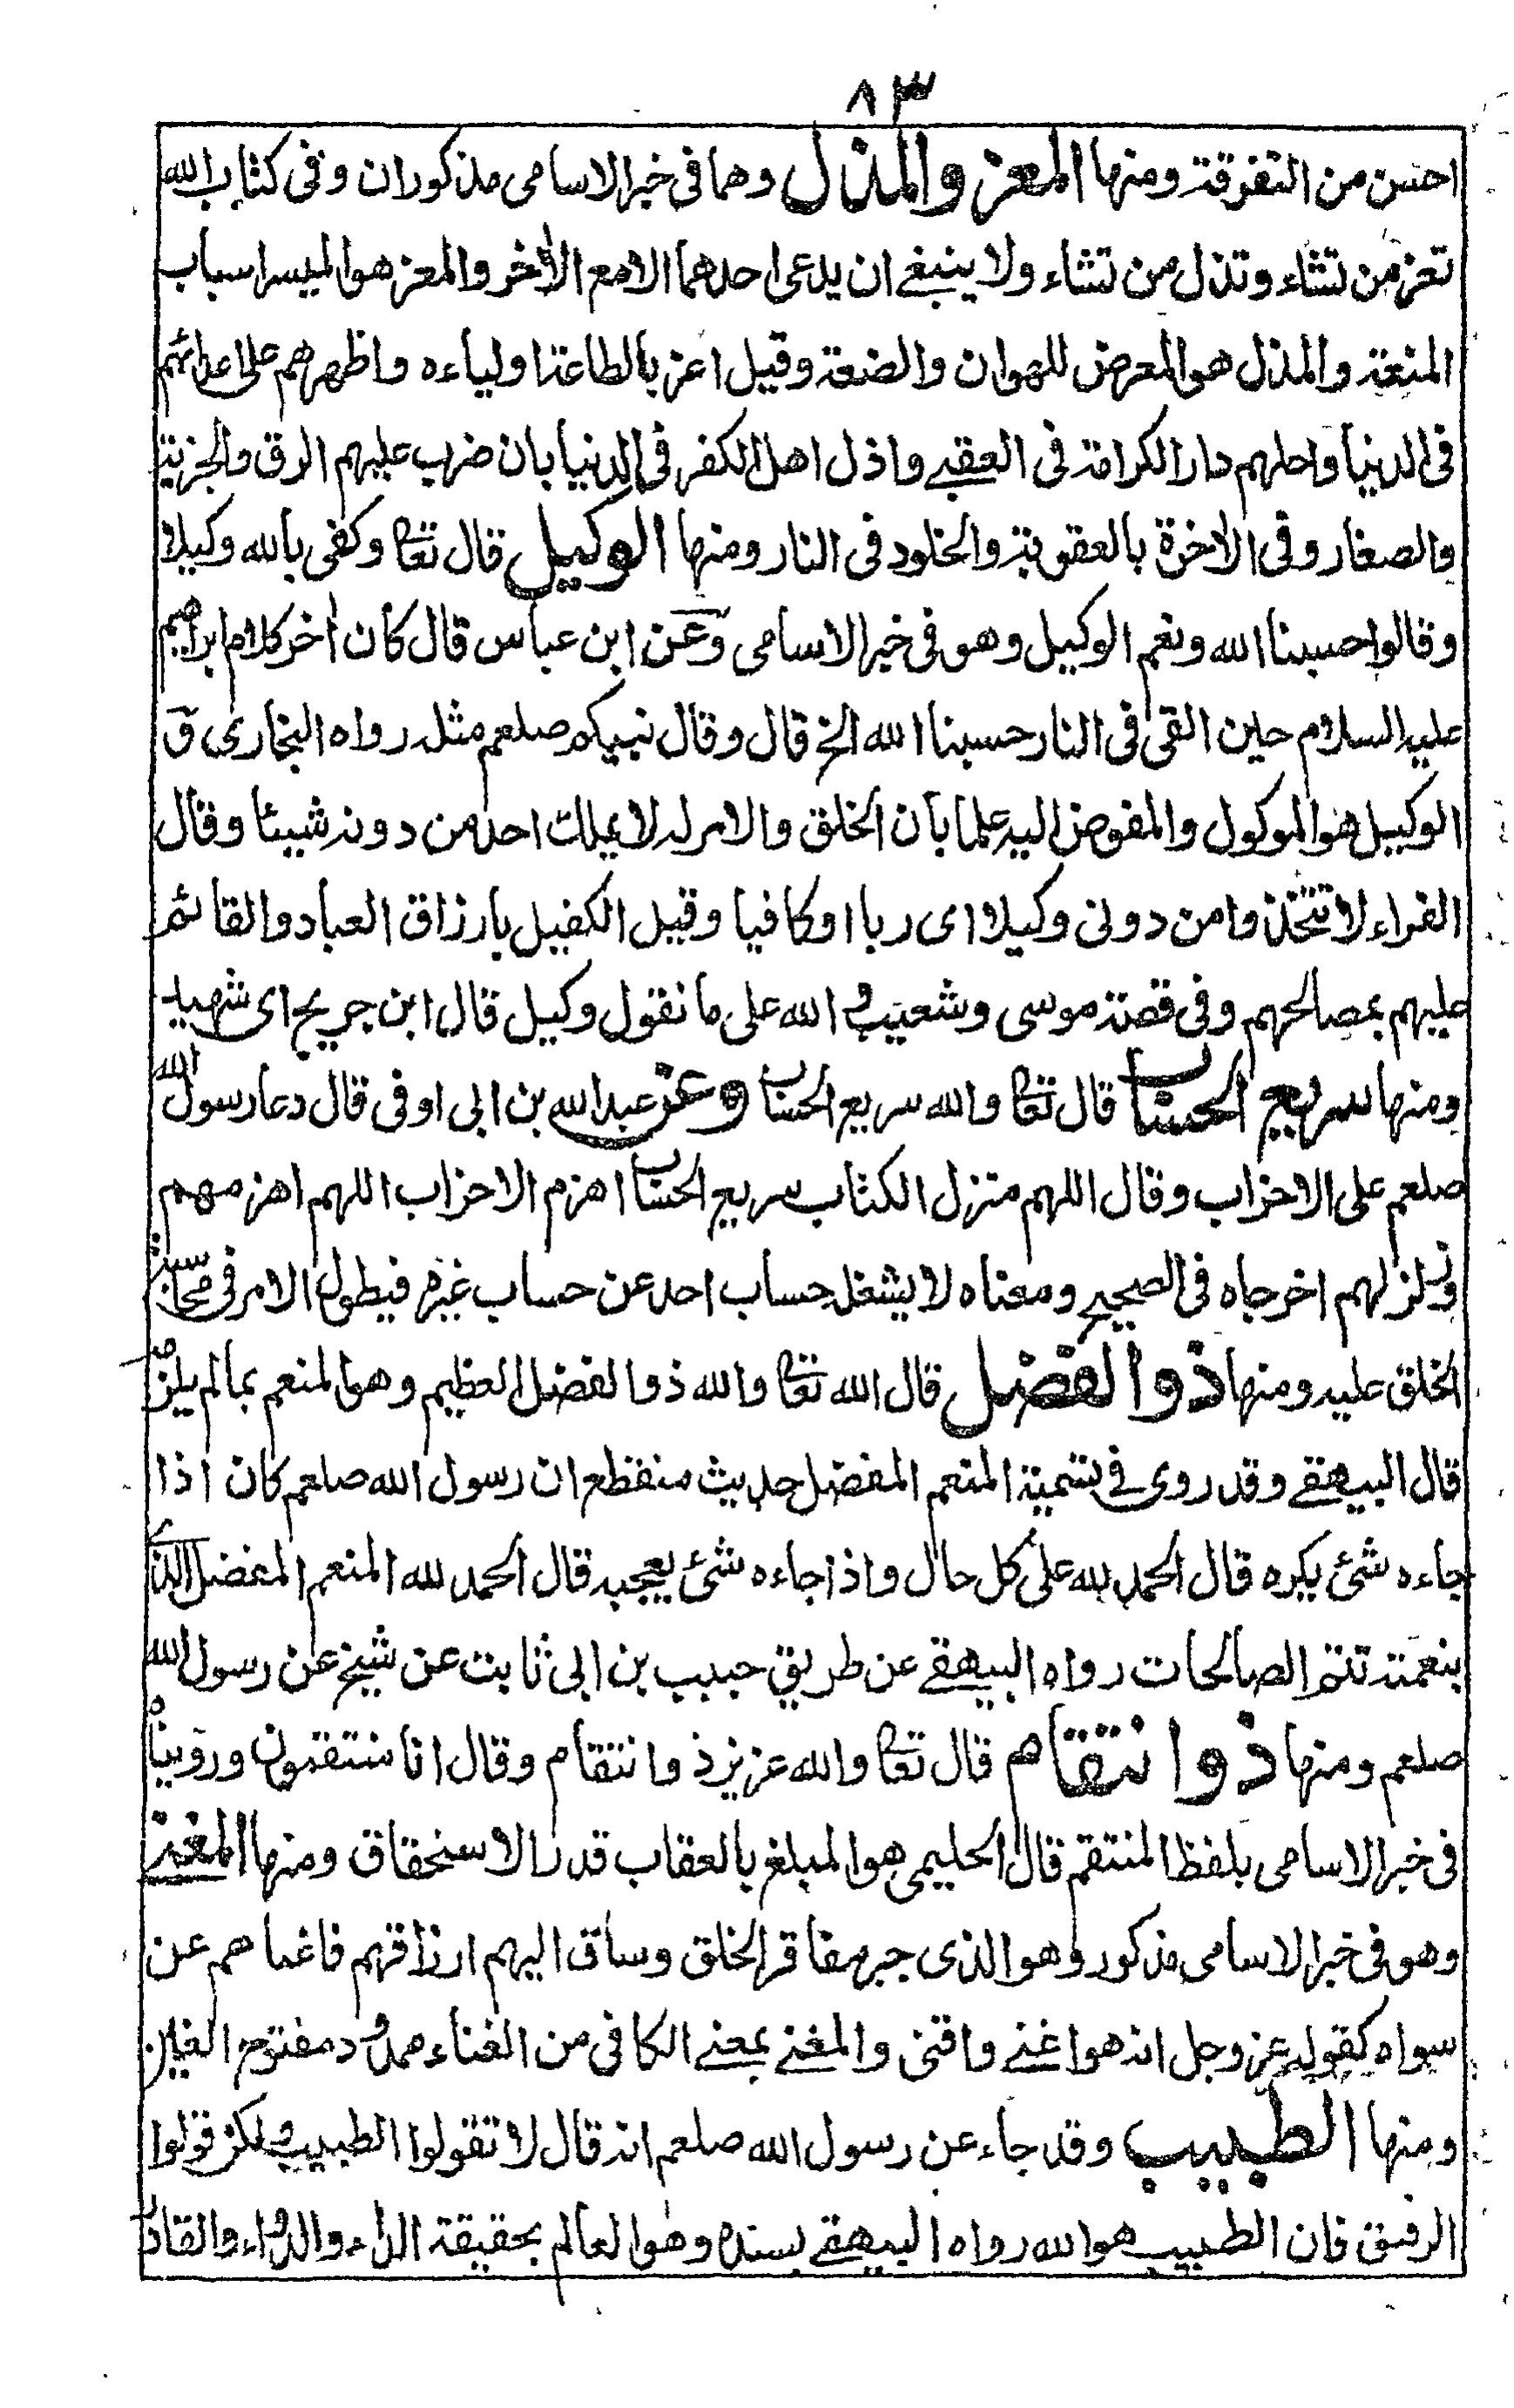 ٨٣
احسن من التفرقة ومنها المعز والمذل وهما فى خبر الاسامى مذكوران وفى كتاب الله
تعز من تشاء وتذل من تشاء ولا ينبغے ان يدعى احدهما الا مع الاخر والمعز هو الميسر اسباب
المنعة والمذل هو المعرض للهوان والضعة وقيل اعز بالطاعة اولياءه واظهرهم على اعدائهم
فى الدنيا واحلهم دار الكرامة فى العقبے واذل اهل الكفر فى الدنيا بان ضرب عليهم الرق والجزية
والصغار وفى الاخرة بالعقوبة والخلود فى النار ومنها الوكيل قال تعا وكفى بالله وكيلا
وقالوا حسبنا الله ونعم الوكيل وهو فى خبر الاسامى وعن ابن عباس قال كان اخر كلام ابراهيم
عليه السلام حين القى فى النار حسبنا الله الخ قال وقال نبيكم صلعم مثله رواه البخارى ق
الوكيل هو الموكول والمفوض اليه علما بان الخلق والامر له لا يملك احد من دونه شيئا وقال
الفراء لا تتخذوا من دونى وكيلا اى ربا او كافيا وقيل الكفيل بارزاق العباد والقائم
عليهم بمصالحهم وفى قصة موسى وشعيب و الله على ما نقول وكيل قال ابن جريج اى شهيد
ومنها سريع الحساب قال تعا والله سريع الحساب وعن عبد الله بن ابى اوفى قال دعا رسول الله
صلعم على الاحزاب وقال اللهم منزل الكتاب سريع الحساب اهزم الاحزاب اللهم اهزمهم
وزلزلهم اخرجاه فى الصحيح ومعناه لا يشغله حساب احد عن حساب غيره فيطول الامر فى محاسبة
الخلق عليه ومنها ذو الفضل قال الله تعا والله ذو الفضل العظيم وهو المنعم بما لم يلزمه
قال البيهقے وقد روى فے تسمية المنعم المفضل حديث منقطع ان رسول الله صلعم كان اذا
جاءه شئ يكره قال الحمد لله على كل حال واذا جاءه شئ يعجبه قال الحمد لله المنعم المفضل الذى
بنعمته تتم الصالحات رواه البيهقے عن طريق حبيب بن ابى ثابت عن شيخ عن رسول الله
صلعم ومنها ذو انتقام قال تعا والله عزيز ذو انتقام وقال انا منتقمون وروينا
فى خبر الاسامى بلفظ المنتقم قال الحليمى هو المبلغ بالعقاب قدر الاستحقاق ومنها المغنے
وهو فى خبر الاسامى مذكور وهو الذى جبر مفاقر الخلق وساق اليهم ارزاقهم فاغناهم عن
سواه كقوله عز وجل انه هو اغنے واقنى والمغنے بمعنے الكافى من الغناء ممدود مفتوح الغين
ومنها الطبيب وقد جاء عن رسول الله صلعم انه قال لا تقولوا الطبيب ولكن قولوا
الرفيق فان الطبيب هو الله رواه البيهقے بسنده وهو العالم بحقيقة الداء والدواء والقادر